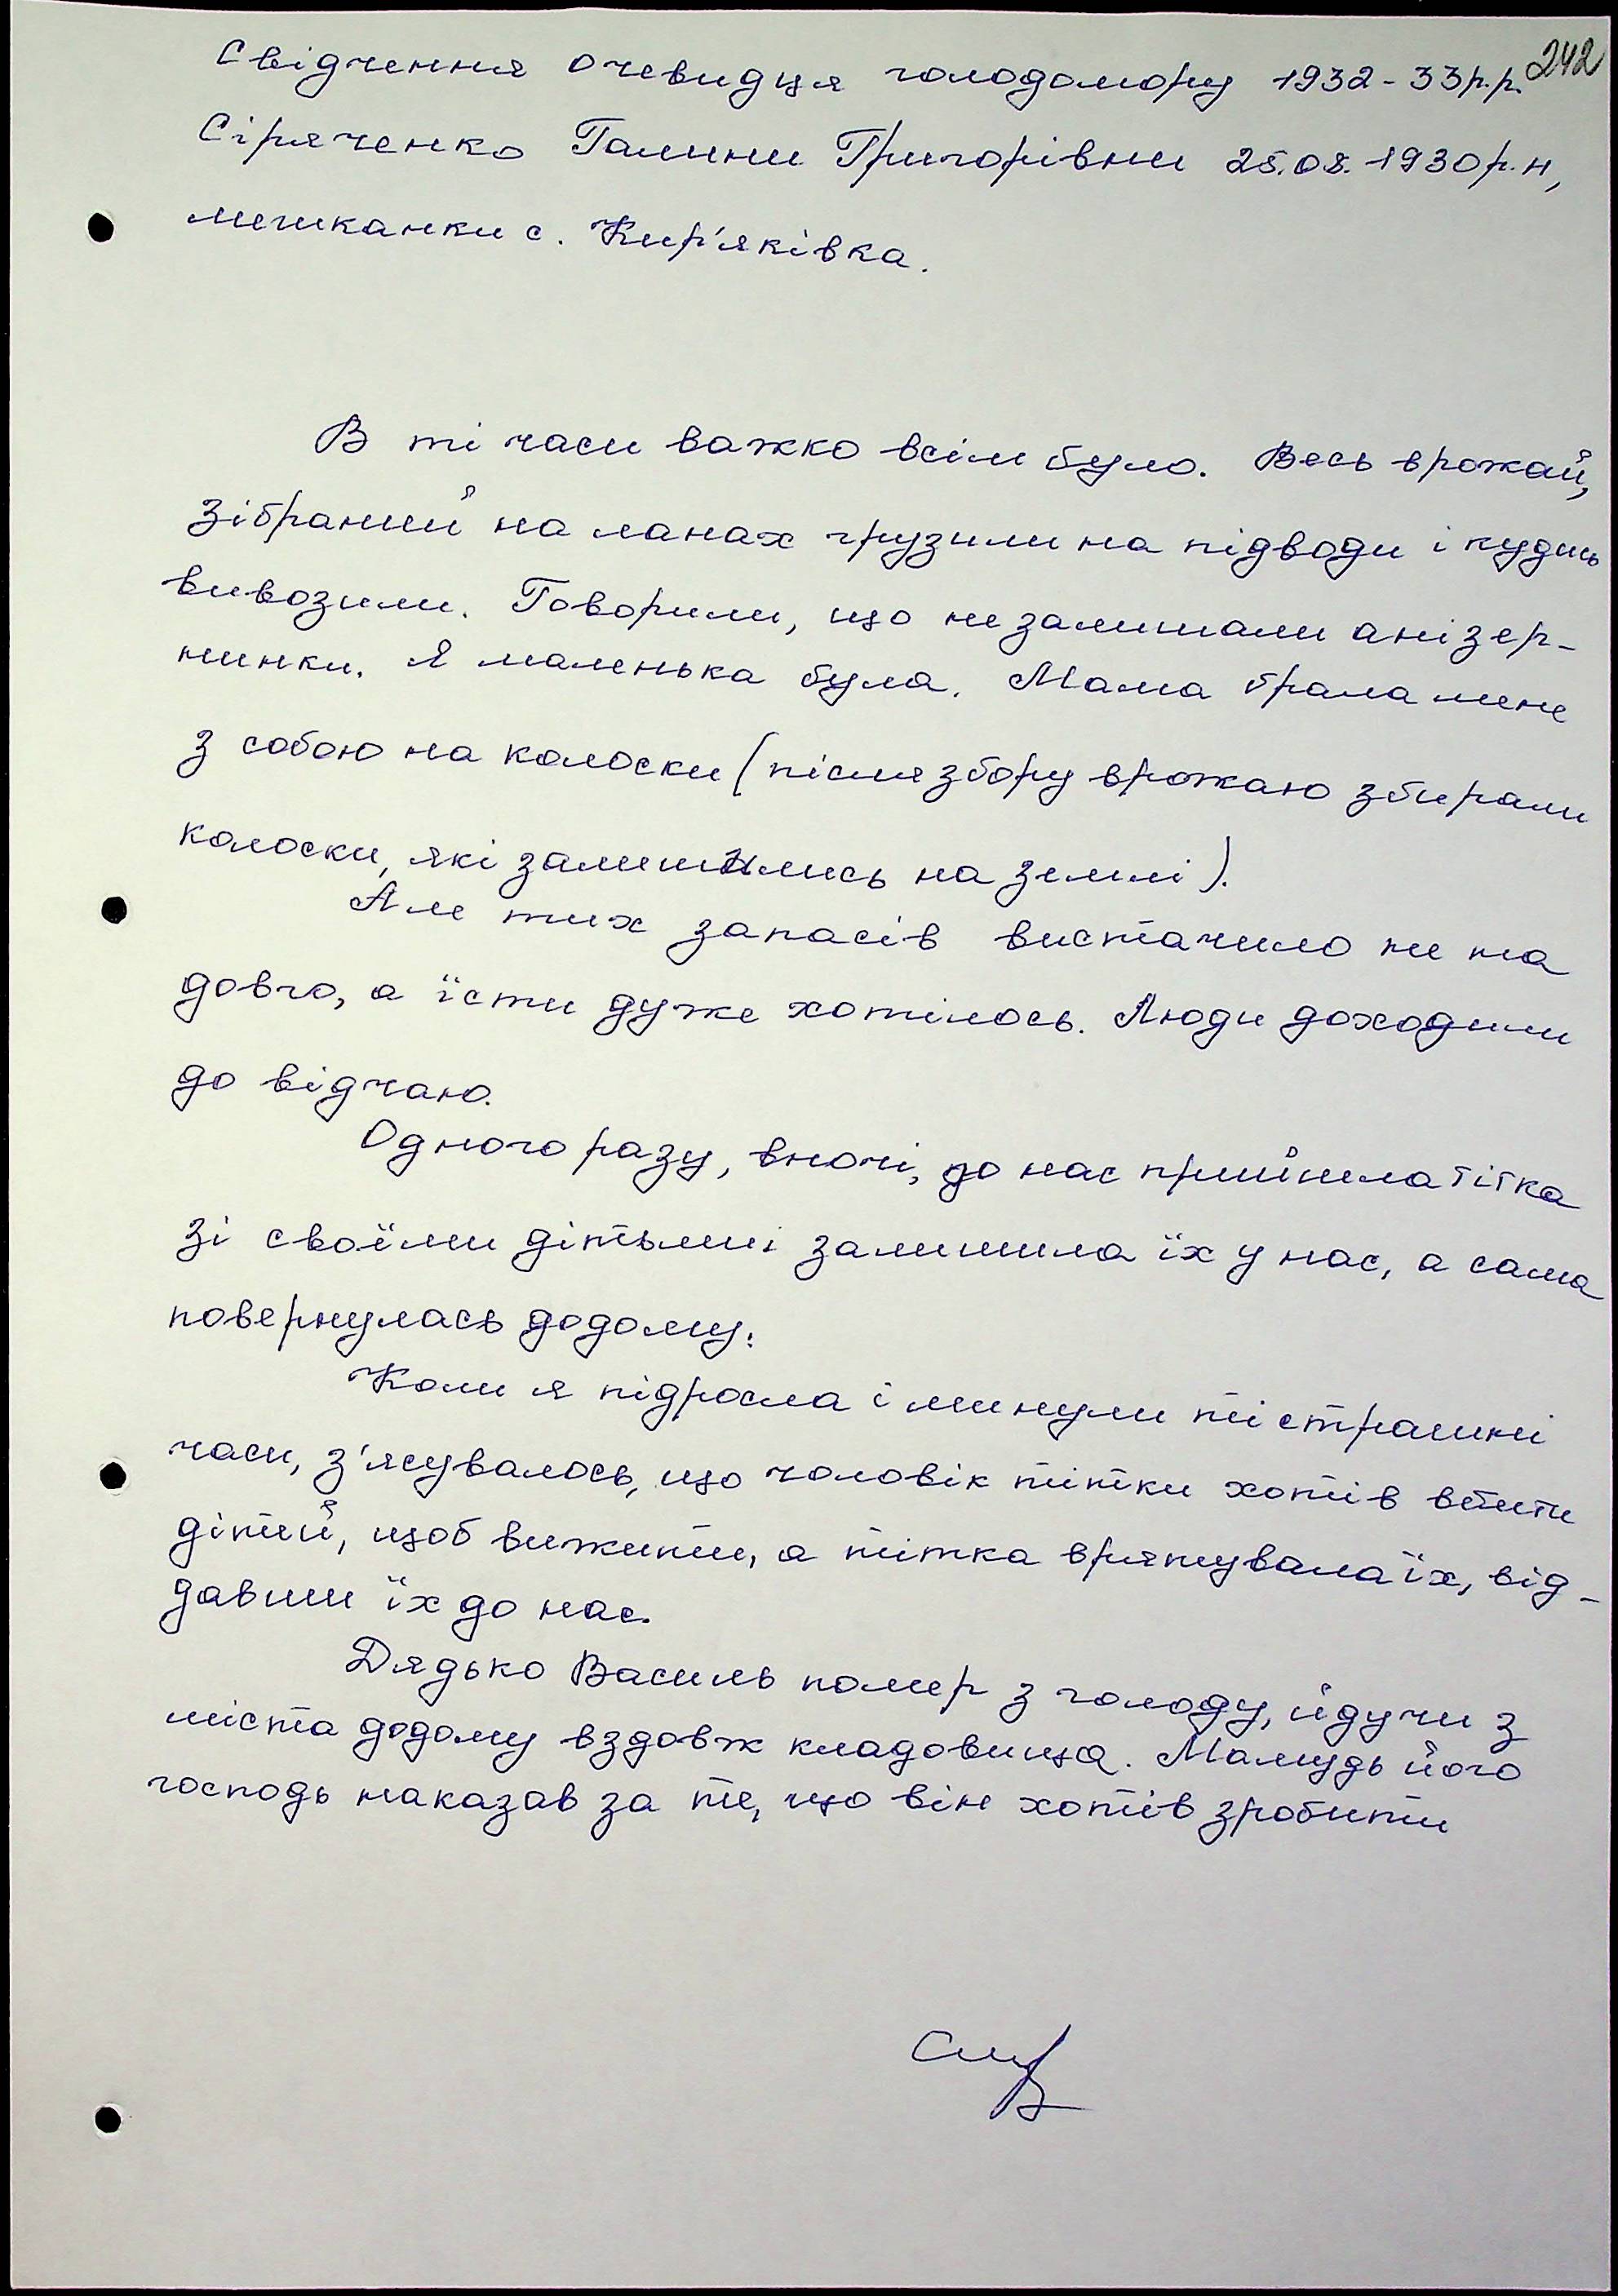 242
Свідчення очевидця голодомору 1932-33р.р.
Сіряченко Галини Григорівни 25.08.1930р.н,
мешканки с. Кир'яківка.
В ті часи важко всім було. Весь врожай,
зібраний на ланах грузили на підводи і кудись
вивозили. Говорили, що не залишали ані зер-
нинки. Я маленька була. Мама брала мене
з собою на колоски (після збору врожаю збирали
колоски, які залишились на землі).
Але тих запасів вистачило не на
довго, а їсти дуже хотілось. Люди доходили
до відчаю.
Одного разу, вночі, до нас прийшла тітка
зі своїми дітьми і залишила їх у нас, а сама
повернулась додому.
Коли я підросла і минули ті страшні
часи, з'ясувалось, що чоловік тітки хотів вбити
дітей, щоб вижити, а тітка врятувала їх, від-
давши їх до нас.
Дядько Василь помер з голоду, йдучи з
міста додому вздовж кладовища. Мамудь його
господь наказав за те, що він хотів зробити